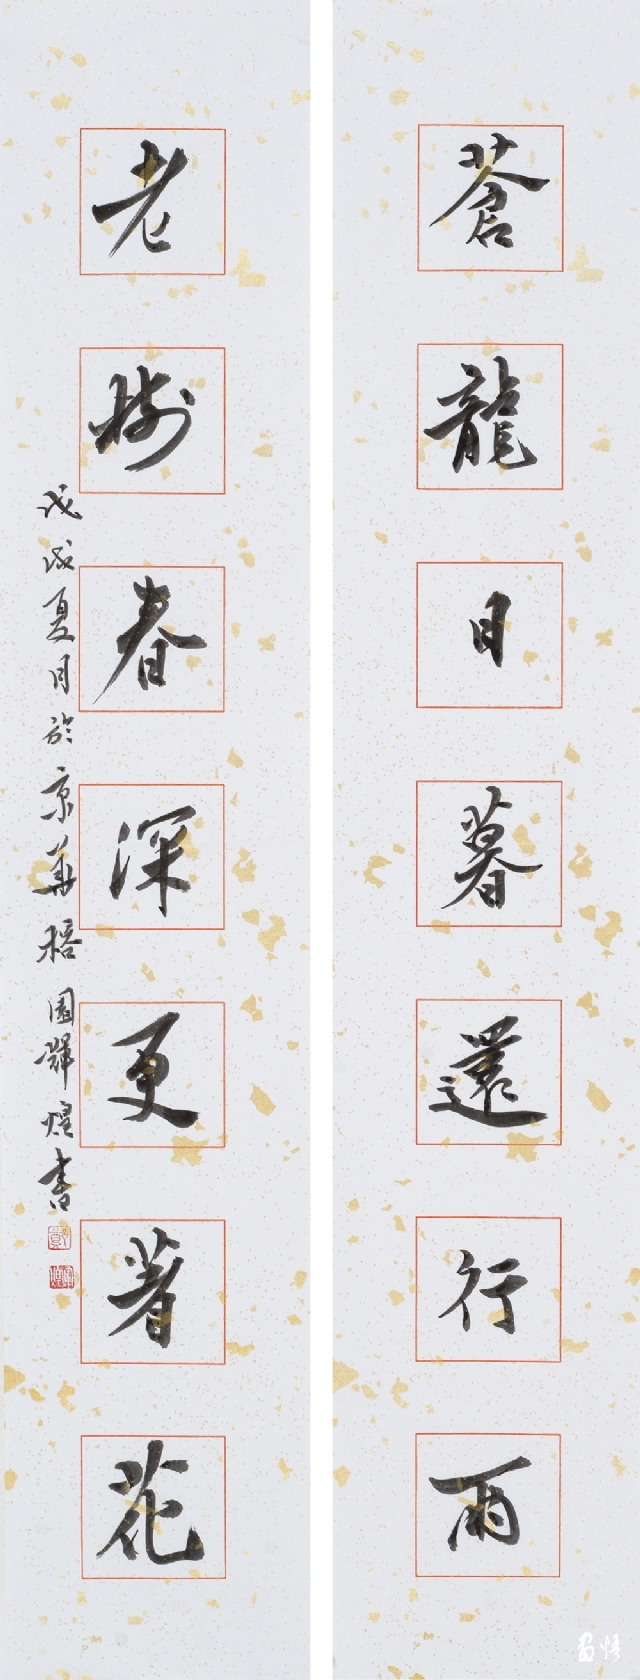 蒼龍日暮還行雨
老樹春深更著花
戊戌夏月於京華榕園輝煌書